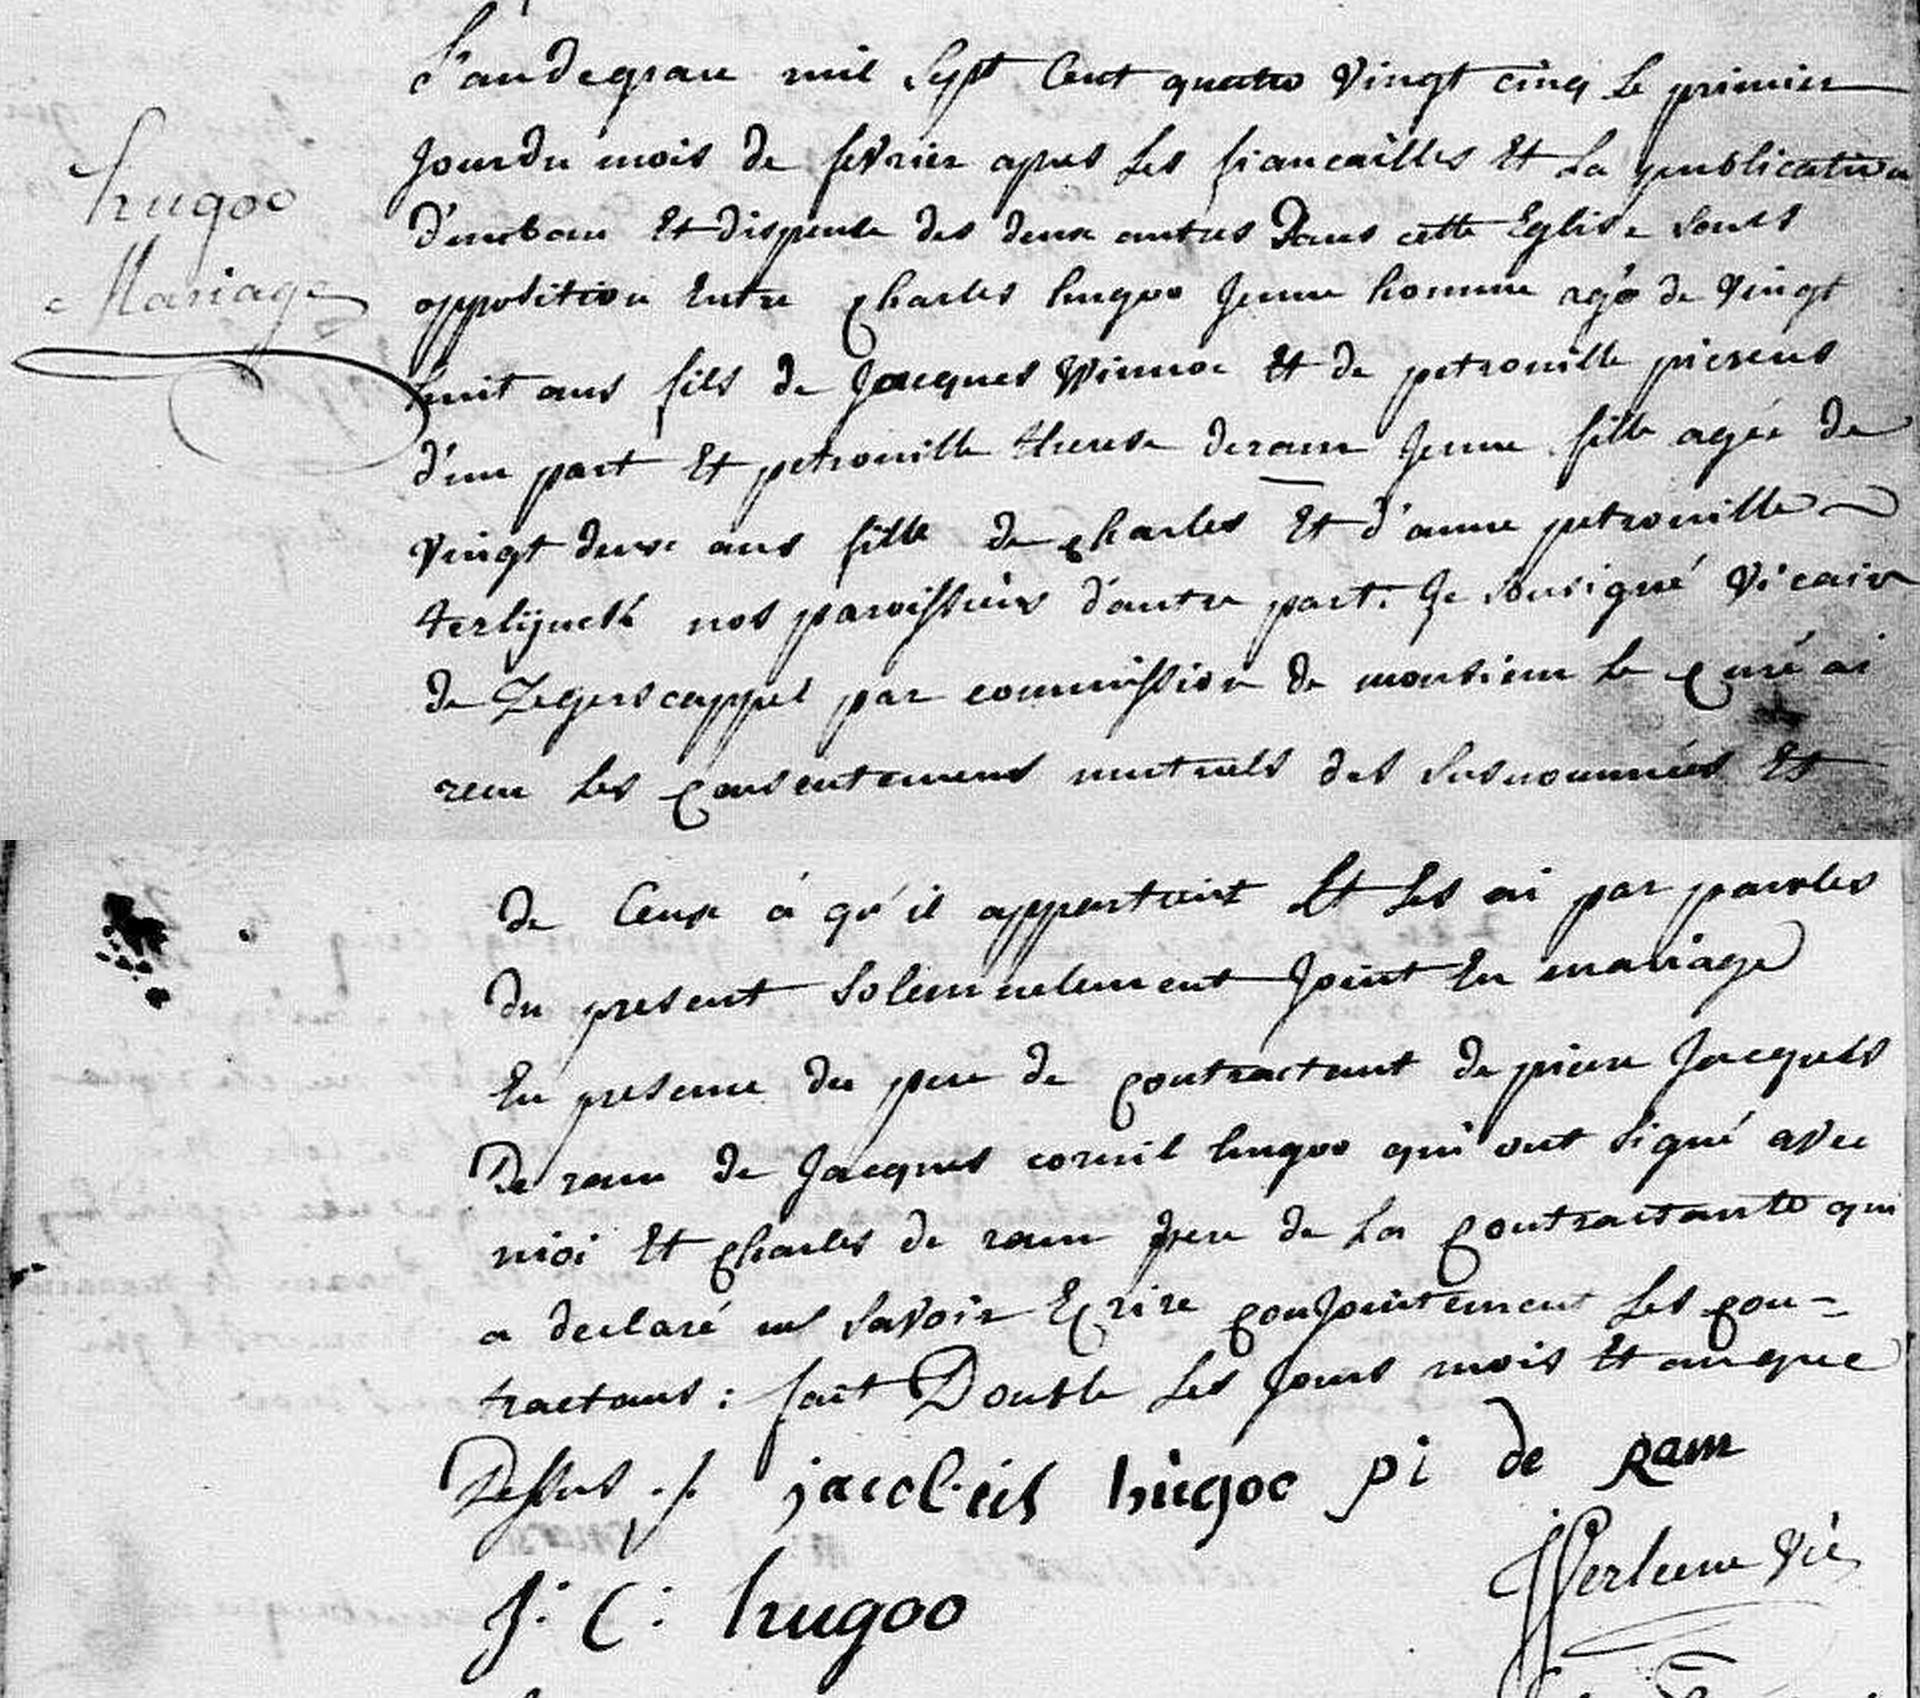 hugoo
Mariage
L'an de grace mil sept cent quatre vingt cinq le primier
jour du mois de fevrier apres les fiancailles et la publication
d'un ban et dispense des deux autres dans cette eglise sans
opposition entre charles hugoo jeune homme agé de vingt
huit ans fils de jacques winnoc et de petronille pierens
d'une part et petronille therese deram jeune fille agée de
vingt deux ans fille de charles et d'anne petronille
terlynck nos paroissiens d'autre part. je sousigné vicaire
de Zegerscappel par commission de monsieur le curé ai
recu les consentemens mutuels des susnommées et
de ceux à qu'il appartient et les ai par paroles
du present solemnelement joint en mariage
en presence du pere de contractant de piere jacques
De ram de jacques corneil hugoo qui ont signé avec
moi et charles de ram pere de la contractante qui
a declaré ne savoir ecrire conjointement les con-
tractans : fait Double les jours mois et an que
Dessus ./. jacobus hugoo pi de ram
J: C: hugoo
vic